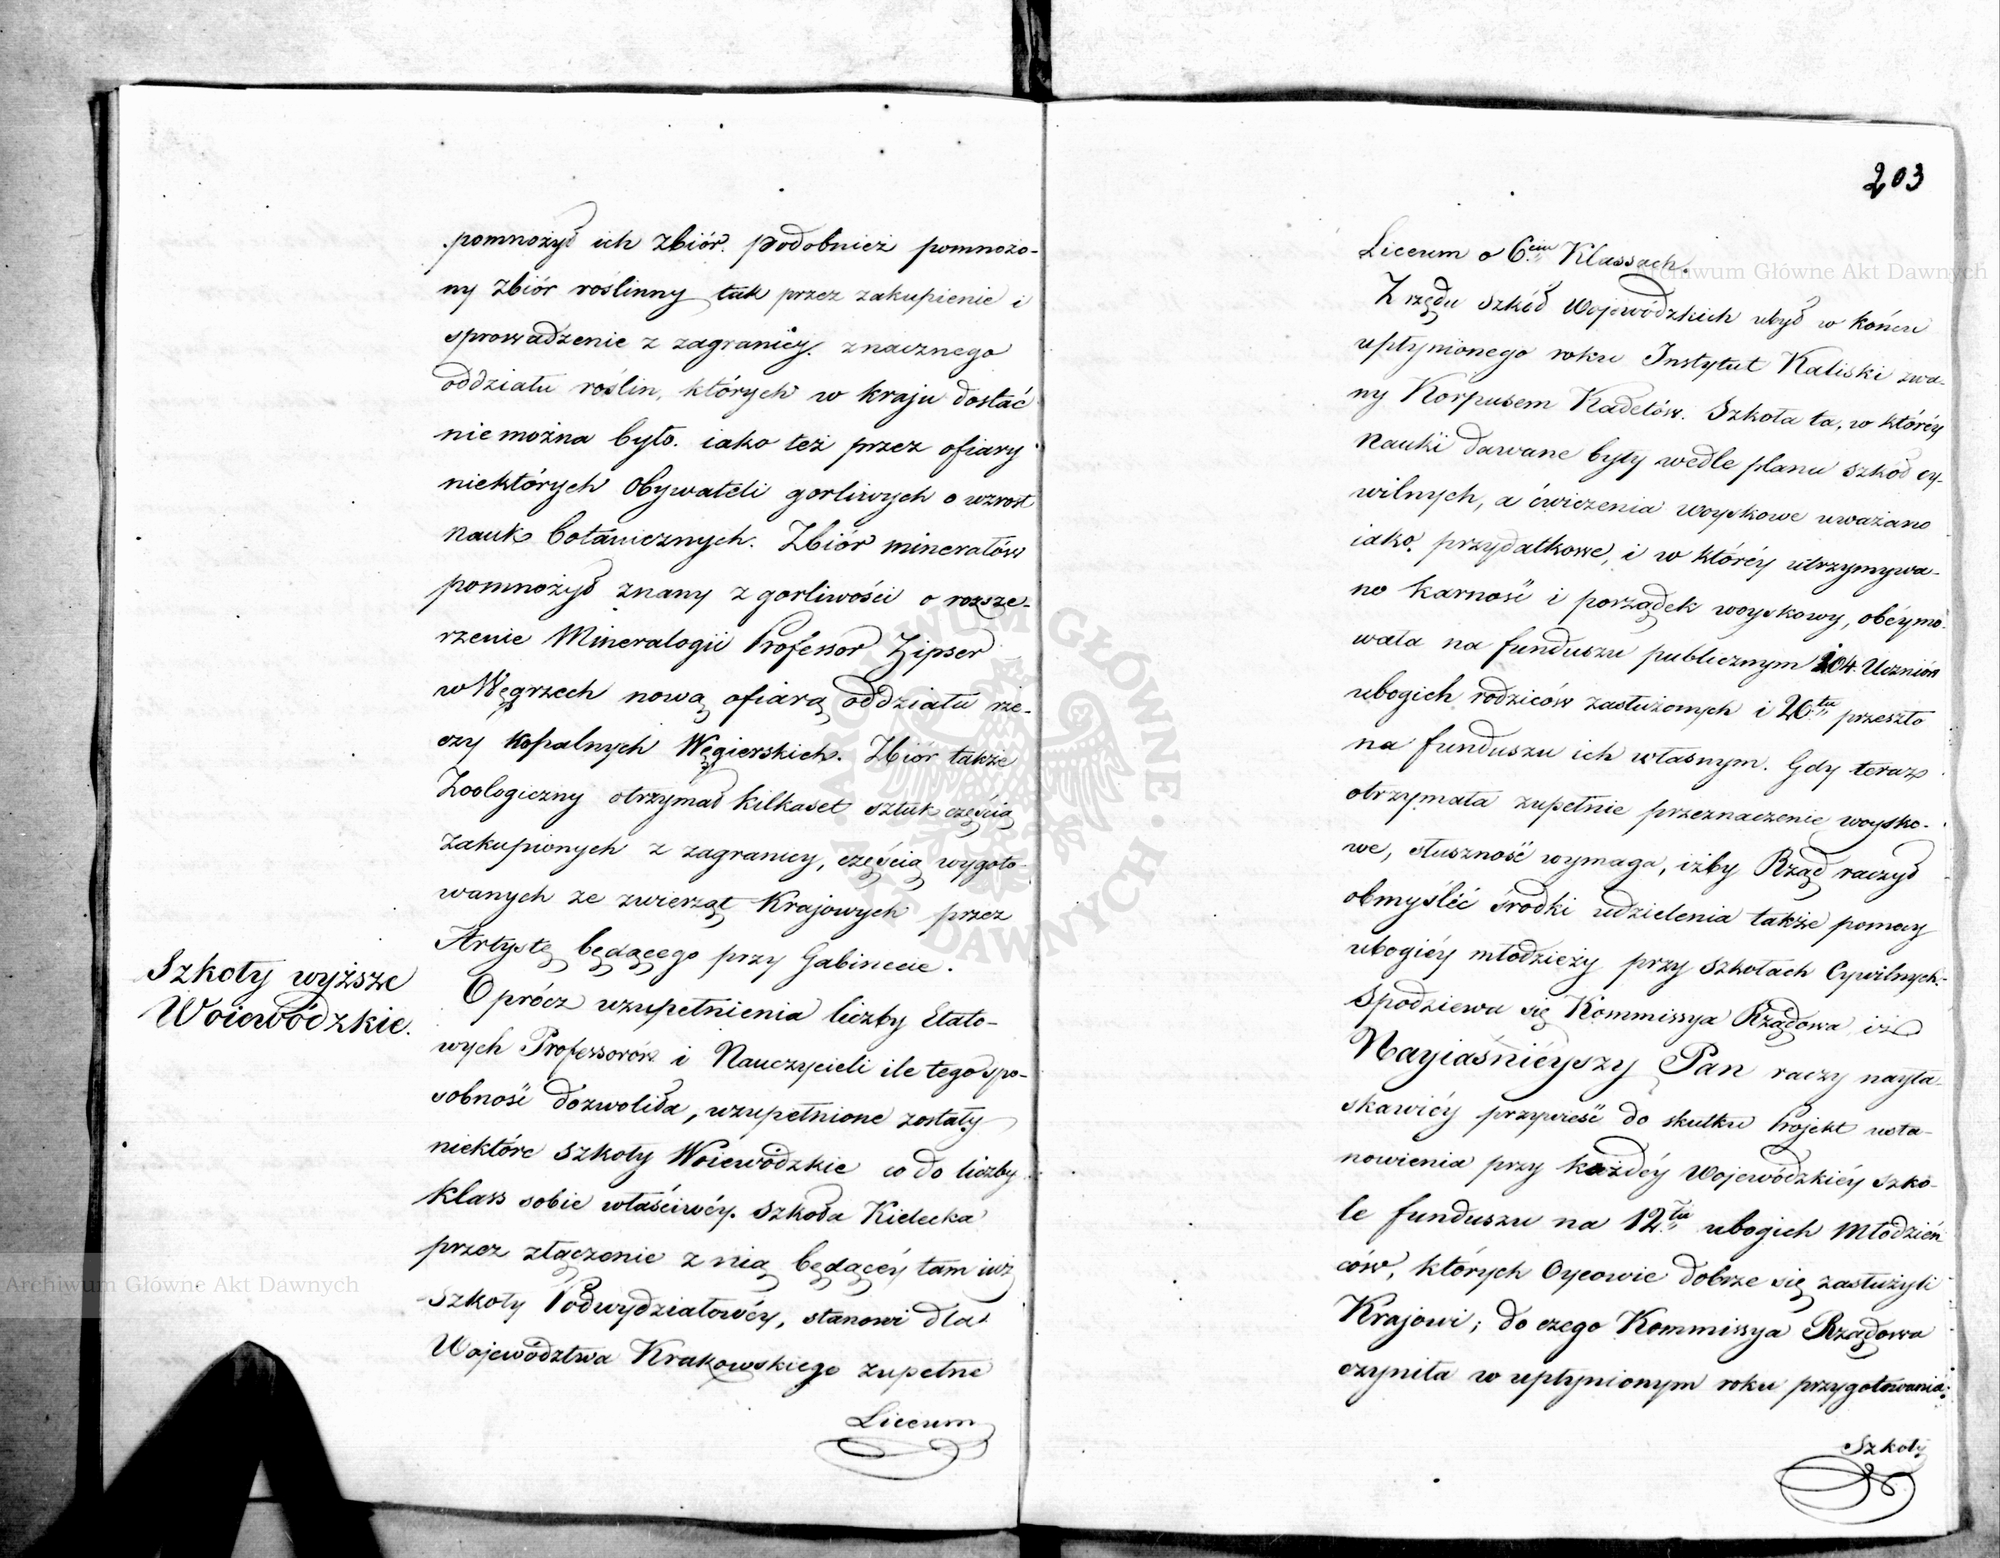 pomnożył ich zbiór. podobnież pomnożo-
ny zbiór roślinny tak przez zakupienie i
sprowadzenie z zagranicy znacznego
oddziału roślin, których w kraju dostać
nie można było. iako też przez ofiary
niektórych Obywateli gorliwych o wzrost
nauk botanicznych. Zbiór minerałów
pomnożył znany z gorliwości o rozsze-
rzenie Mineralogii Professor Zipser
w Węgrzech nową ofiarą oddziału rze-
czy kopalnych Węgierskich. Zbior także
Zoologiczny otrzymał kilkaset sztuk częścią
zakupionych z zagranicy, częścią wygoto-
wanych ze zwierząt Krajowych przez
Artystę będącego przy Gabinecie.
Szkoły wyższe
Woiewódzkie.
Oprócz uzupełnienia liczby Etato-
wych Professorów i Nauczycieli ile tego spo-
sobność dozwoliła, uzupełnione zostały
niektóre szkoły Woiewódzkie co do liczby
klass sobie właściwéy. Szkoła Kielecka
przez złączenie z nią będącéy tam już
Szkoły Podwydziałowéy, stanowi dla
Województwa Krakowskiego zupełne
Liceum
203
Liceum o 6ciu Klassach.
Z rzędu szkół Wojewódzkich ubył w końcu
upłynionego roku Instytut Kaliski zwa-
ny Korpusem Kadetów. Szkoła ta, w któréy
Nauki dawane były wedle planu szkół cy-
wilnych, a ćwiczenia woyskowe uważano
iako przydatkowe, i w któréy utrzymywa-
no karność i porządek woyskowy, obéymo-
wała na funduszu publicznym 104 Uczniów
ubogich rodziców zasłużonych i 20tu przeszło
na funduszu ich własnym. Gdy teraz
otrzymała zupełnie przeznaczenie woysko-
we, słuszność wymaga, iżby Rząd raczył
obmyśléć środki udzielenia także pomocy
ubogiéy młodzieży przy szkołach Cywilnych.
Spodziewa się Kommissya Rządowa iż
Nayiaśniéyszy Pan raczy nayła-
skawiéy przywieść do skutku Projekt usta-
nowienia przy każdéy Wojewódzkiéy szko-
le funduszu na 12tu ubogich Młodzień
ców, których Oycowie dobrze się zasłużyli
Krajowi; do czego Kommissya Rządowa
czyniła w upłynionym roku przygotowania.
Szkoły
Archiwum Główne Akt Dawnych
Archiwum Główne Akt Dawnych
ARCHIWUM GŁÓWNE AKT DAWNYCH